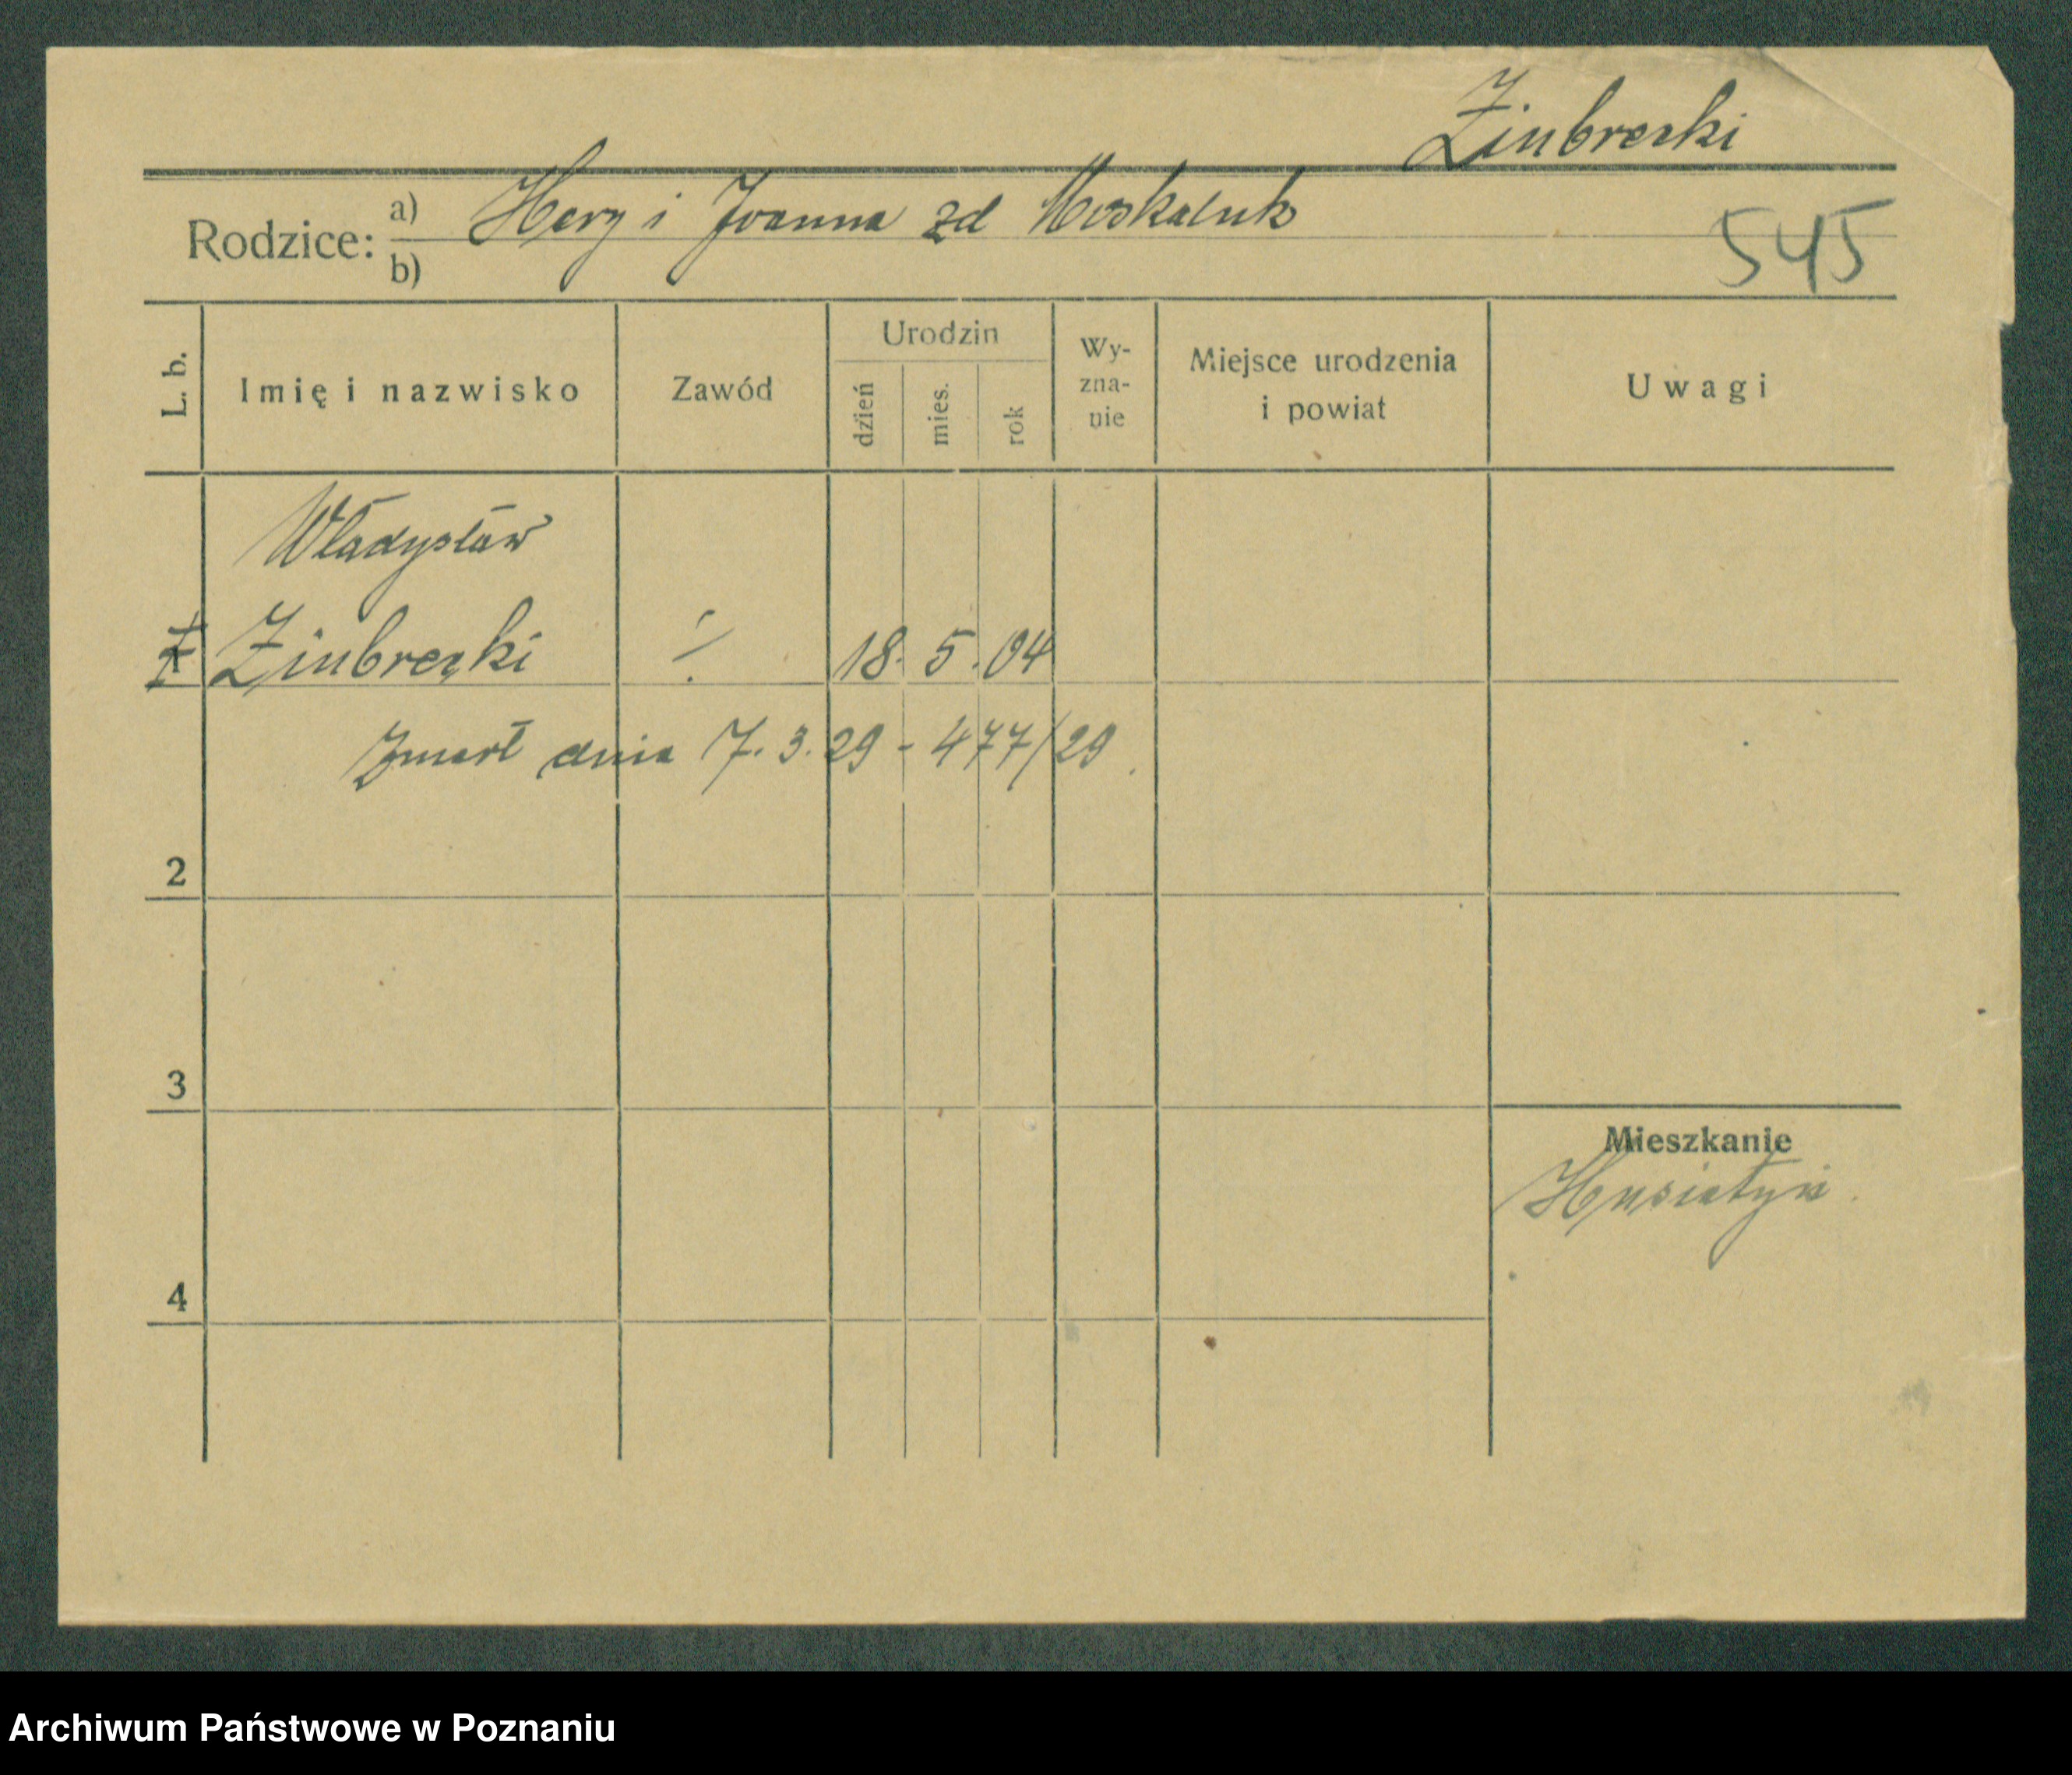 Zinbrecki
Rodzice: a) Hery i Joanna zd Moskaluk
b)
545
L. b. Imię i nazwisko Zawód Urodzin dzień mies. rok Wy-zna-nie Miejsce urodzenia i powiat Uwagi
Władysław
Zinbrecki ./. 18. 5. 04
Zmarł dnia 7. 3. 29 - 477/29.
2
3
Mieszkanie
Husiatyń.
4
Archiwum Państwowe w Poznaniu